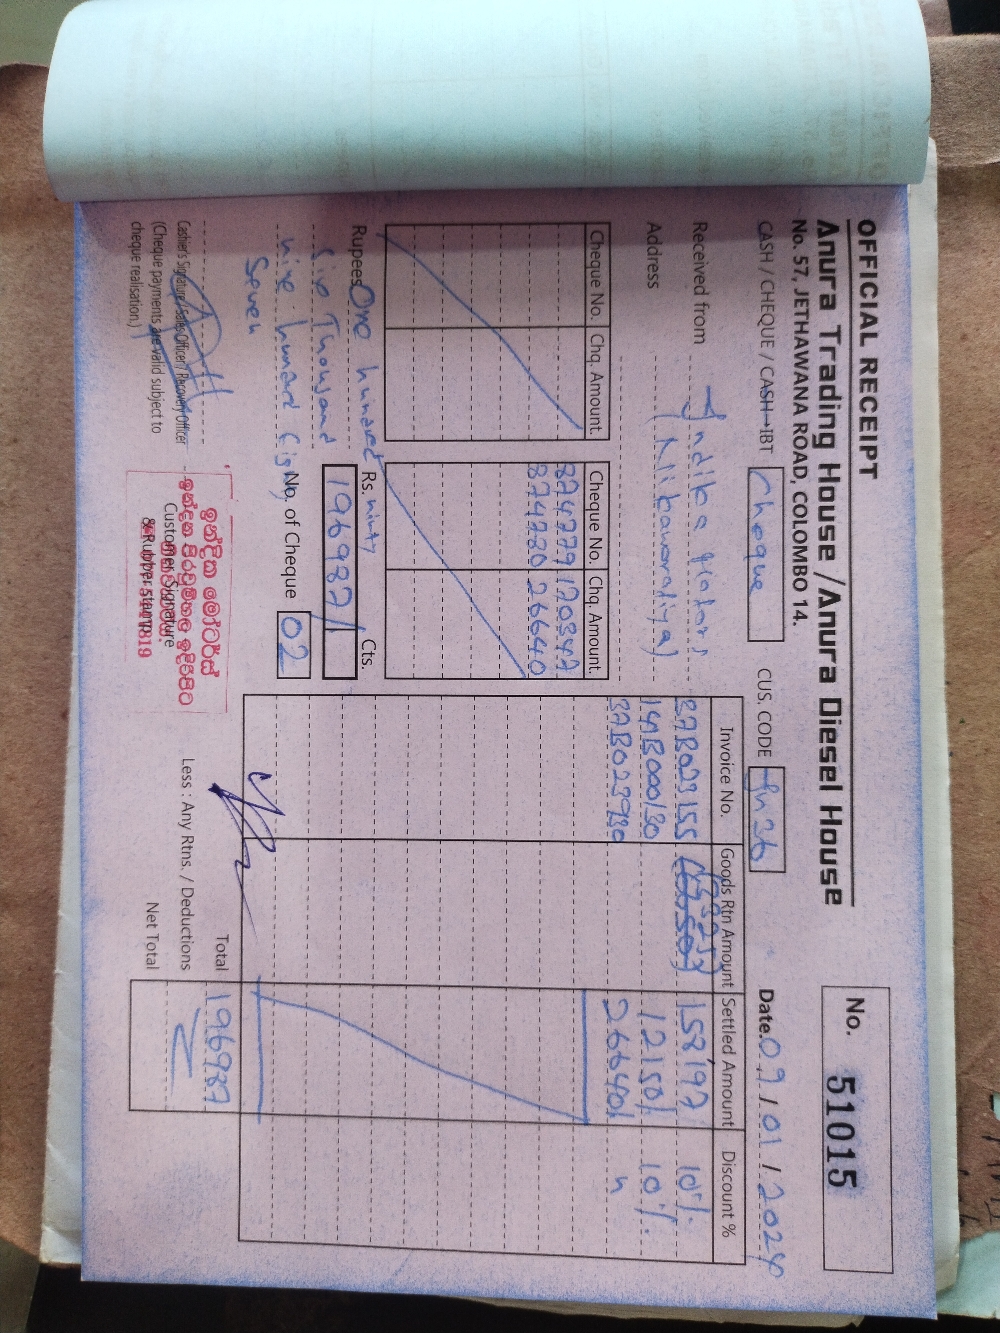 OFFICIAL RECEIPT
Anura Trading House / Anura Diesel House
No. 57, JETHAWANA ROAD, COLOMBO 14.
No. 51015
CASH / CHEQUE / CASH→IBT Cheque
CUS. CODE
Date. 09 / 01 / 2024
Received from Indika Motors
Address
Cheque No. Chq. Amount.
Cheque No. Chq. Amount.
874779 170347
874780 26640
Rupees One hundred ninty
Six Thousand
nine hundred Eighty
Seven
Rs. Cts.
196987/
No. of Cheque 02
Invoice No. Goods Rtn Amount Settled Amount Discount %
37B023155 158197 10%
14B000130 12150/ 10%
37B023930 26640/ "
Total 196987
Less : Any Rtns. / Deductions
Net Total
Cashier's Signature/Sales Officer / Recovery Officer
(Cheque payments are valid subject to
cheque realisation.)
Customer Signature
& Rubber stamp
ඉන්දික මෝටර්ස්